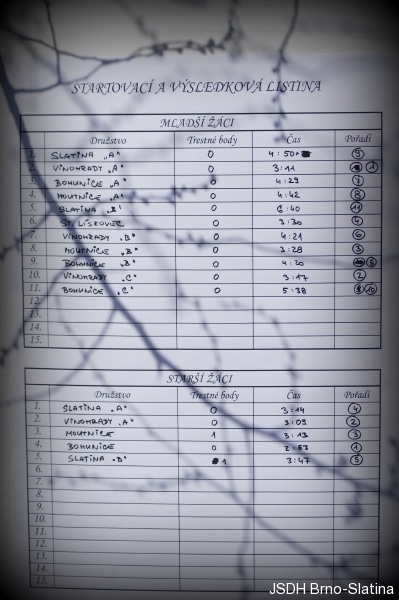 STARTOVACÍ A VÝSLEDKOVÁ LISTINA
MLADŠÍ ŽÁCI
Družstvo Trestné body Čas Pořadí
1. SLATINA „A" 0 4:50 9
2. VINOHRADY „A" 0 3:11 1
3. BOHUNICE „A" 0 4:29 7
4. MOUTNICE „A" 0 4:42 8
5. SLATINA „B" 0 6:40 11
6. ST. LÍSKOVEC 0 3:30 4
7. VINOHRADY „B" 0 4:21 6
8. MOUTNICE „B" 0 3:28 3
9. BOHUNICE „B" 0 4:20 5
10. VINOHRADY „C" 0 3:17 2
11. BOHUNICE „C" 0 5:38 10
12.
13.
14.
15.
STARŠÍ ŽÁCI
Družstvo Trestné body Čas Pořadí
1. SLATINA „A" 0 3:14 4
2. VINOHRADY „A" 0 3:09 2
3. MOUTNICE 1 3:13 3
4. BOHUNICE 0 2:53 1
5. SLATINA „B" 1 3:47 5
6.
7.
8.
9.
10.
11.
12.
13.
14.
15.
JSDH Brno-Slatina